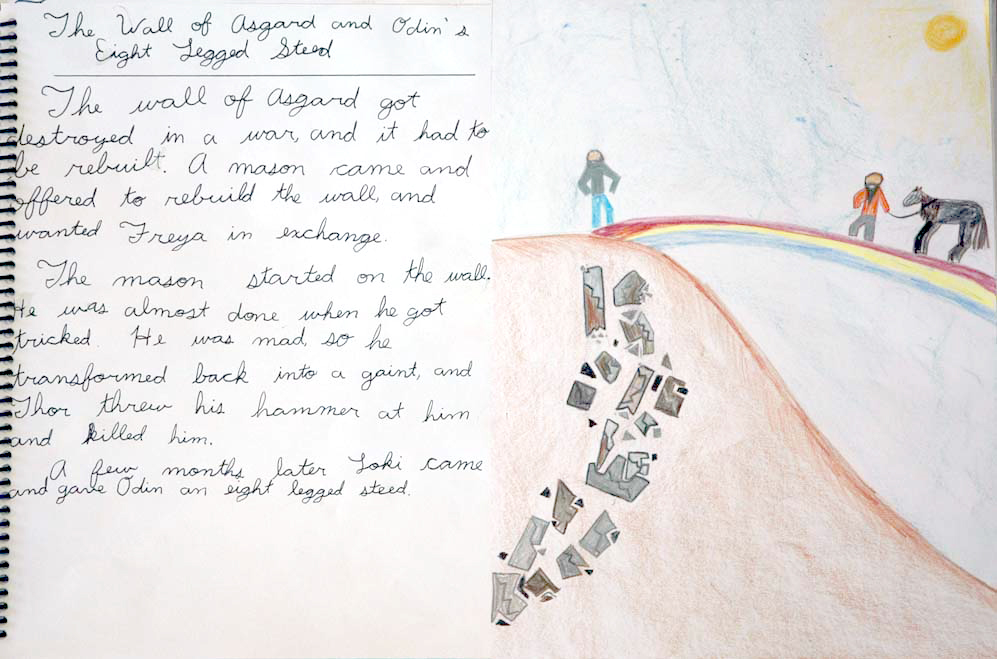 The Wall of Asgard and Odin's
Eight Legged Steed
The wall of Asgard got
destroyed in a war, and it had to
be rebuilt. A mason came and
offered to rebuild the wall, and
wanted Freya in exchange.
The mason started on the wall.
He was almost done when he got
tricked. He was mad, so he
transformed back into a gaint, and
Thor threw his hammer at him
and killed him.
A few months later Loki came
and gave Odin an eight legged steed.